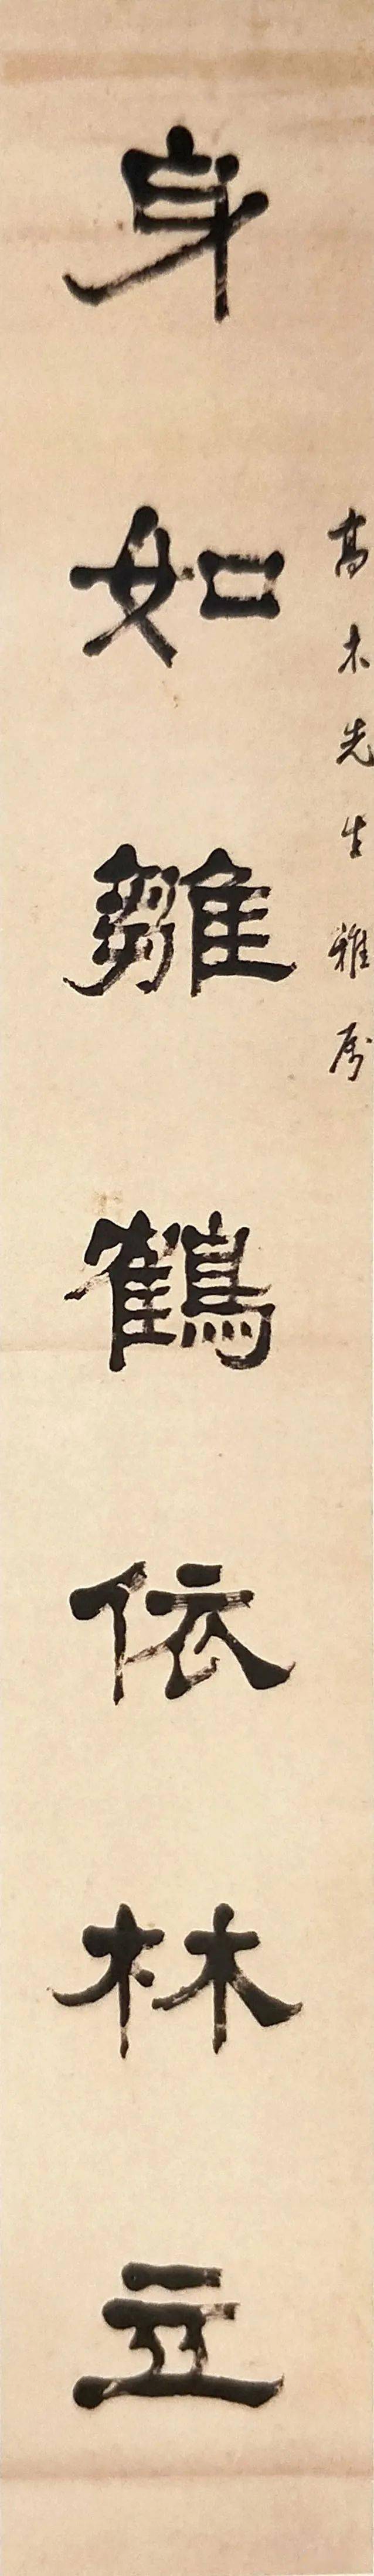 高木先生雅属
身如雛鶴依林立